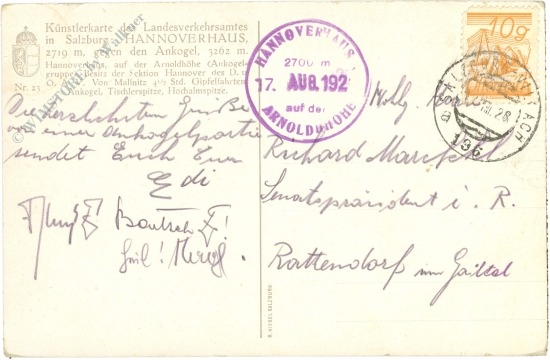 Künstlerkarte des Landesverkehrsamtes
in Salzburg: HANNOVERHAUS,
2719 m, gegen den Ankogel, 3262 m.
Hannoverhaus, auf der Arnoldhöhe (Ankogel-
gruppe), Besitz der Sektion Hannover des D. u.
Ö. A. V. Von Mallnitz 4½ Std. Gipfelfahrten:
Ankogel, Tischlerspitze, Hochalmspitze.
Nr. 23
© WIMSTORE by Walluer
HANNOVERHAUS
2700 m
17. AUG. 192
auf der
ARNOLDHÖHE
10g
Die herzlichsten Grüße
von einer Ankogelpartie
sendet Euch Euer
Edi
Heil!
Richard
Senatspräsident i. R.
Rattendorf im Gailtal
R. KIESEL SALZBURG